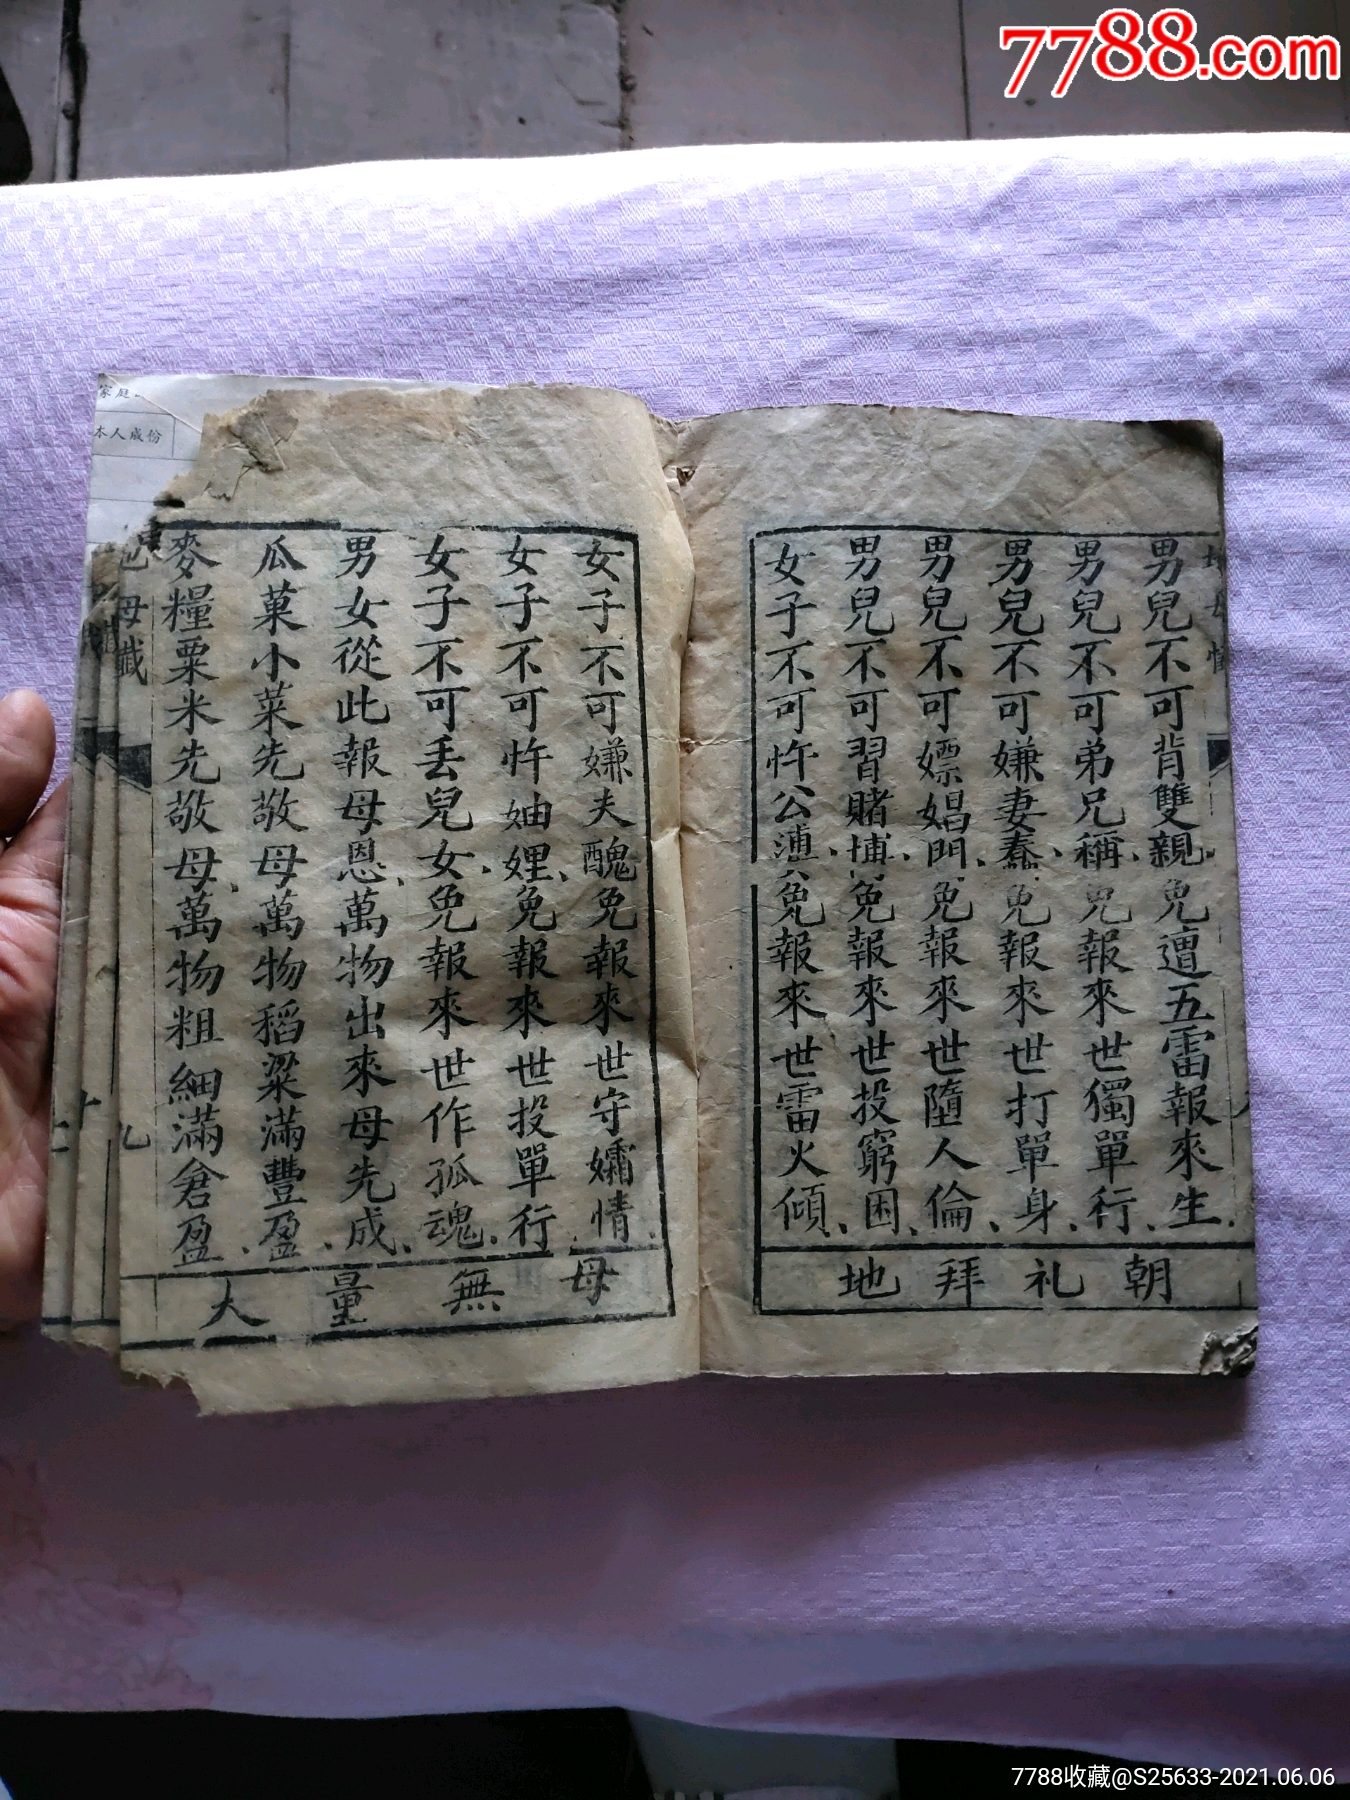 7788.com
男兒不可背雙親免遭五雷報來生
男兒不可弟兄稱免報來世獨單行
男兒不可嫌妻蠢免報來世打單身
男兒不可嫖娼門免報來世墮人倫
男兒不可習賭博免報來世投窮困
女子不可忤公婆免報來世雷火傾
朝礼拜地
女子不可嫌夫醜免報來世守孀情
女子不可忤妯娌免報來世投單行
女子不可丢兒女免報來世作孤魂
男女從此報母恩萬物出來母先成
瓜菓小菜先敬母萬物稻粱滿豐盈
麥糧粟米先敬母萬物粗細滿倉盈
母無量大
母懺
九
家庭
本人成份
7788收藏@S25633-2021.06.06